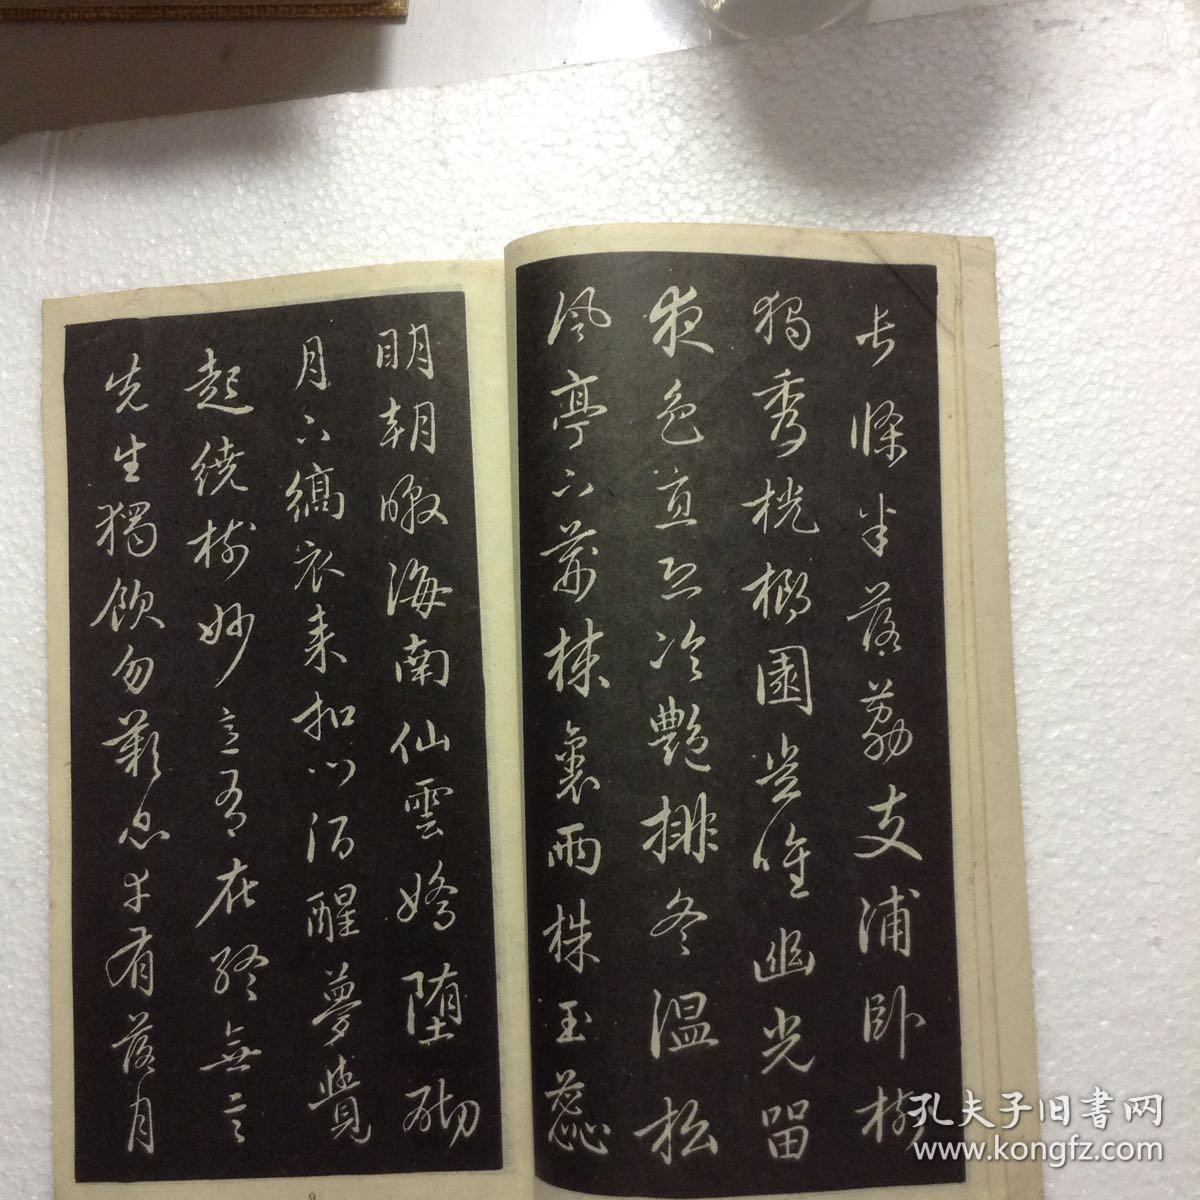 長條半落荔支浦卧樹
獨秀桄榔園豈唯幽光留
夜色直恐冷艷排冬温松
風亭下荊棘裏兩株玉蕊
明朝暾海南仙雲嬌墮砌
月下縞衣来扣門酒醒夢覺
起繞樹妙意有在終無言
先生獨飲勿歎息幸有落月
9
孔夫子旧書网
www.kongfz.com